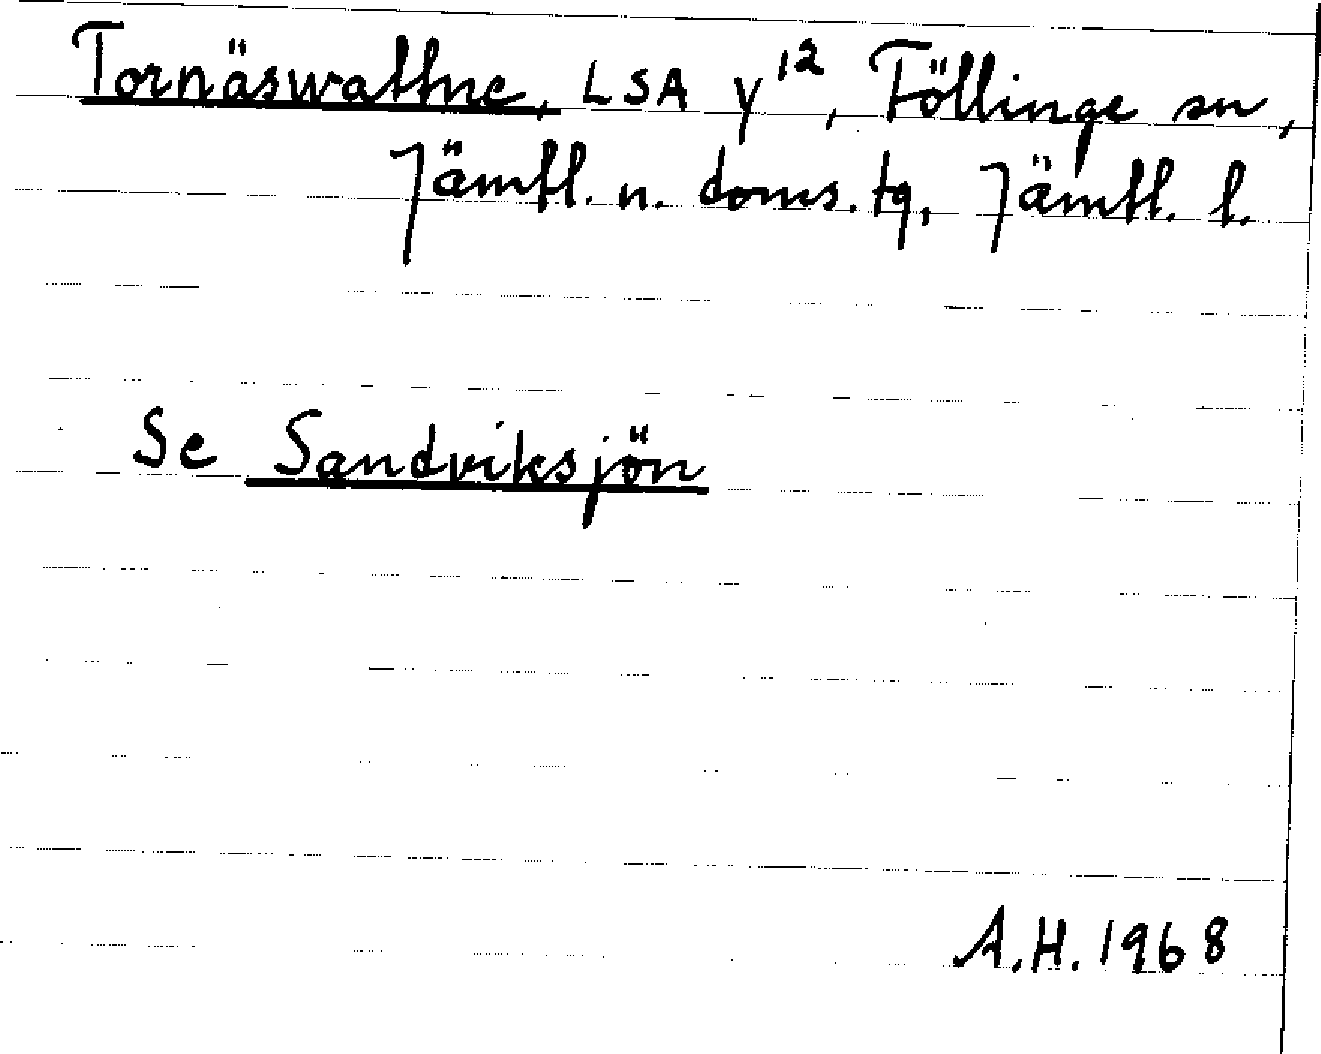 Tornäswattne, LSA y¹², Föllinge sn,
Jämtl. n. doms. tg, Jämtl. l.
Se Sandviksjön
A.H. 1968